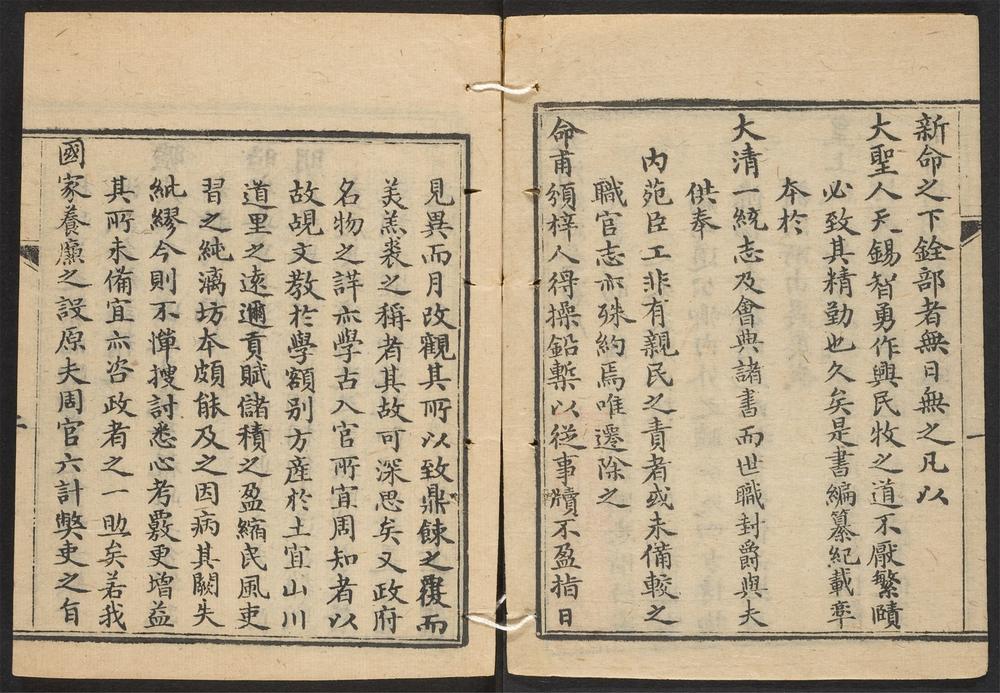 新命之下銓部者無日無之凡以
大聖人天錫智勇作興民牧之道不厭繁賾
必致其精勤也久矣是書編纂紀載率
本於
大清一統志及會典諸書而世職封爵與夫
供奉
內苑臣工非有親民之責者或未備較之
職官志亦殊約焉唯遷除之
命甫頒梓人得操鉛槧以從事牘不盈指日
見異而月改觀其所以致鼎餗之覆而
美羔裘之稱者其故可深思矣又政府
名物之詳亦學古入官所宜周知者以
故覘文教於學額别方產於土宜山川
道里之遠邇貢賦儲積之盈縮民風吏
習之純漓坊本頗能及之因病其闕失
紕繆今則不憚搜討悉心考覈更增益
其所未備宜亦咨政者之一助矣若我
國家養廉之設原夫周官六計弊吏之旨
一
二